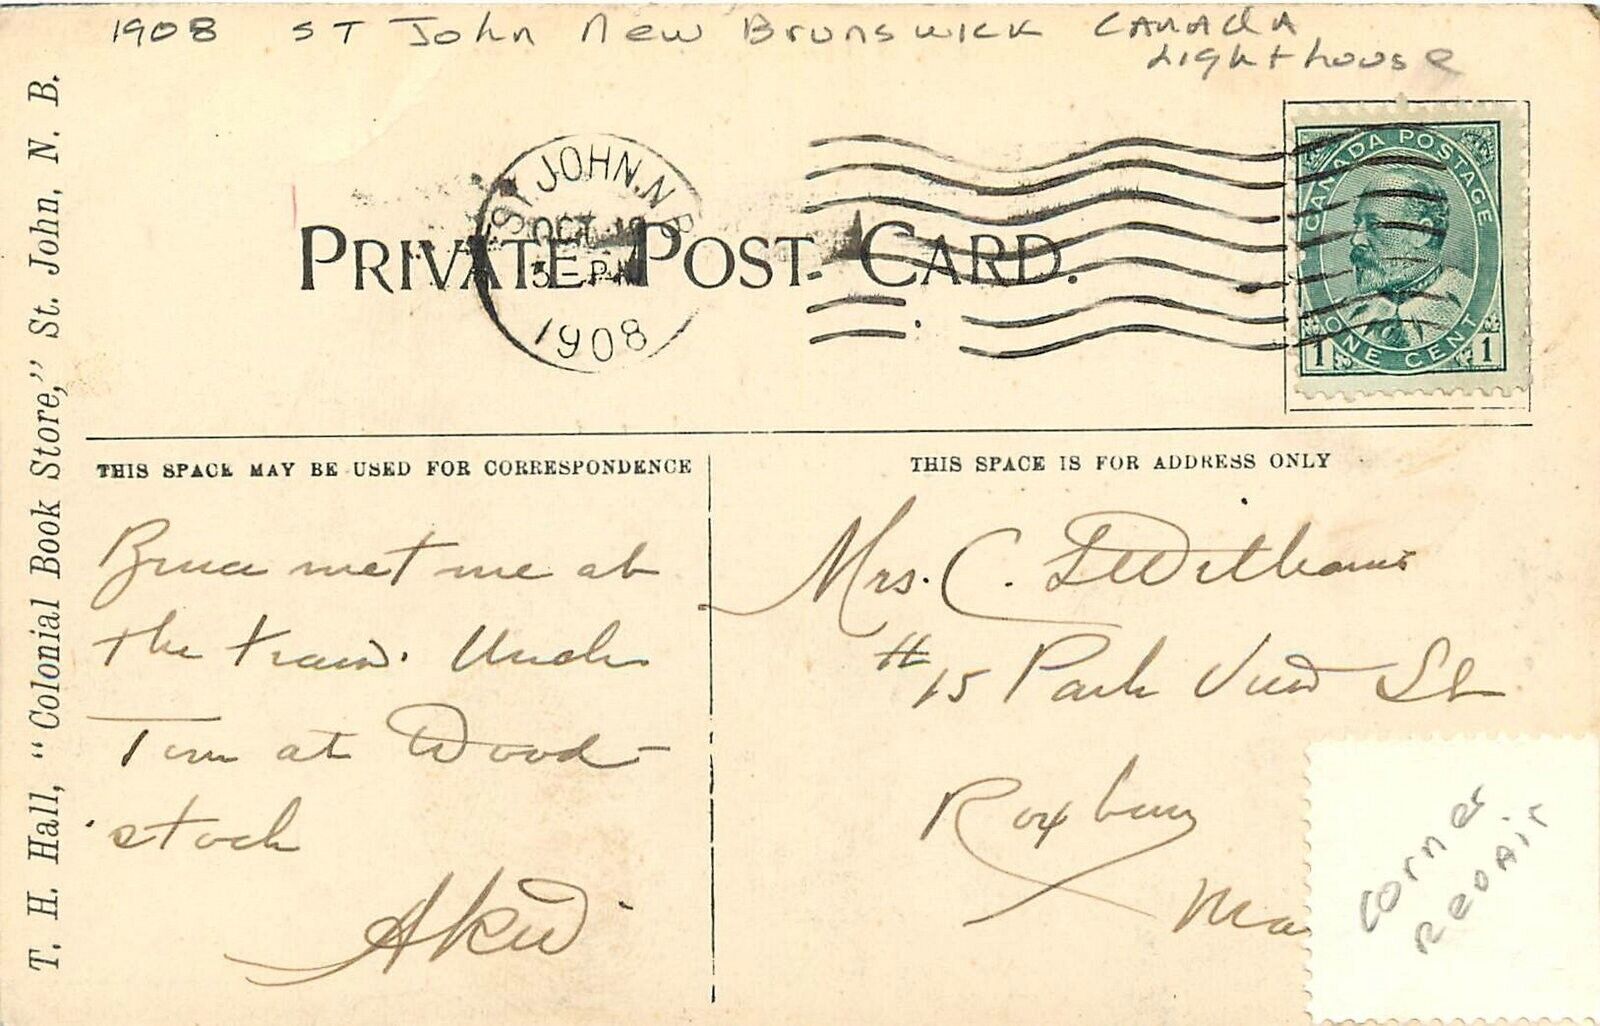 1908 ST John New Brunswick CANADA
Lighthouse
T. H. Hall, "Colonial Book Store," St. John, N. B.
ST. JOHN. N B
OCT
5 - PM
1908
PRIVATE POST CARD.
CANADA POSTAGE
1 ONE CENT 1
THIS SPACE MAY BE USED FOR CORRESPONDENCE
Bruce met me at
the train. Uncle
Tim at Wood-
stock
THIS SPACE IS FOR ADDRESS ONLY
Mrs. C. Williams
#15 Park View St
Roxbury
Ma
corner
repair